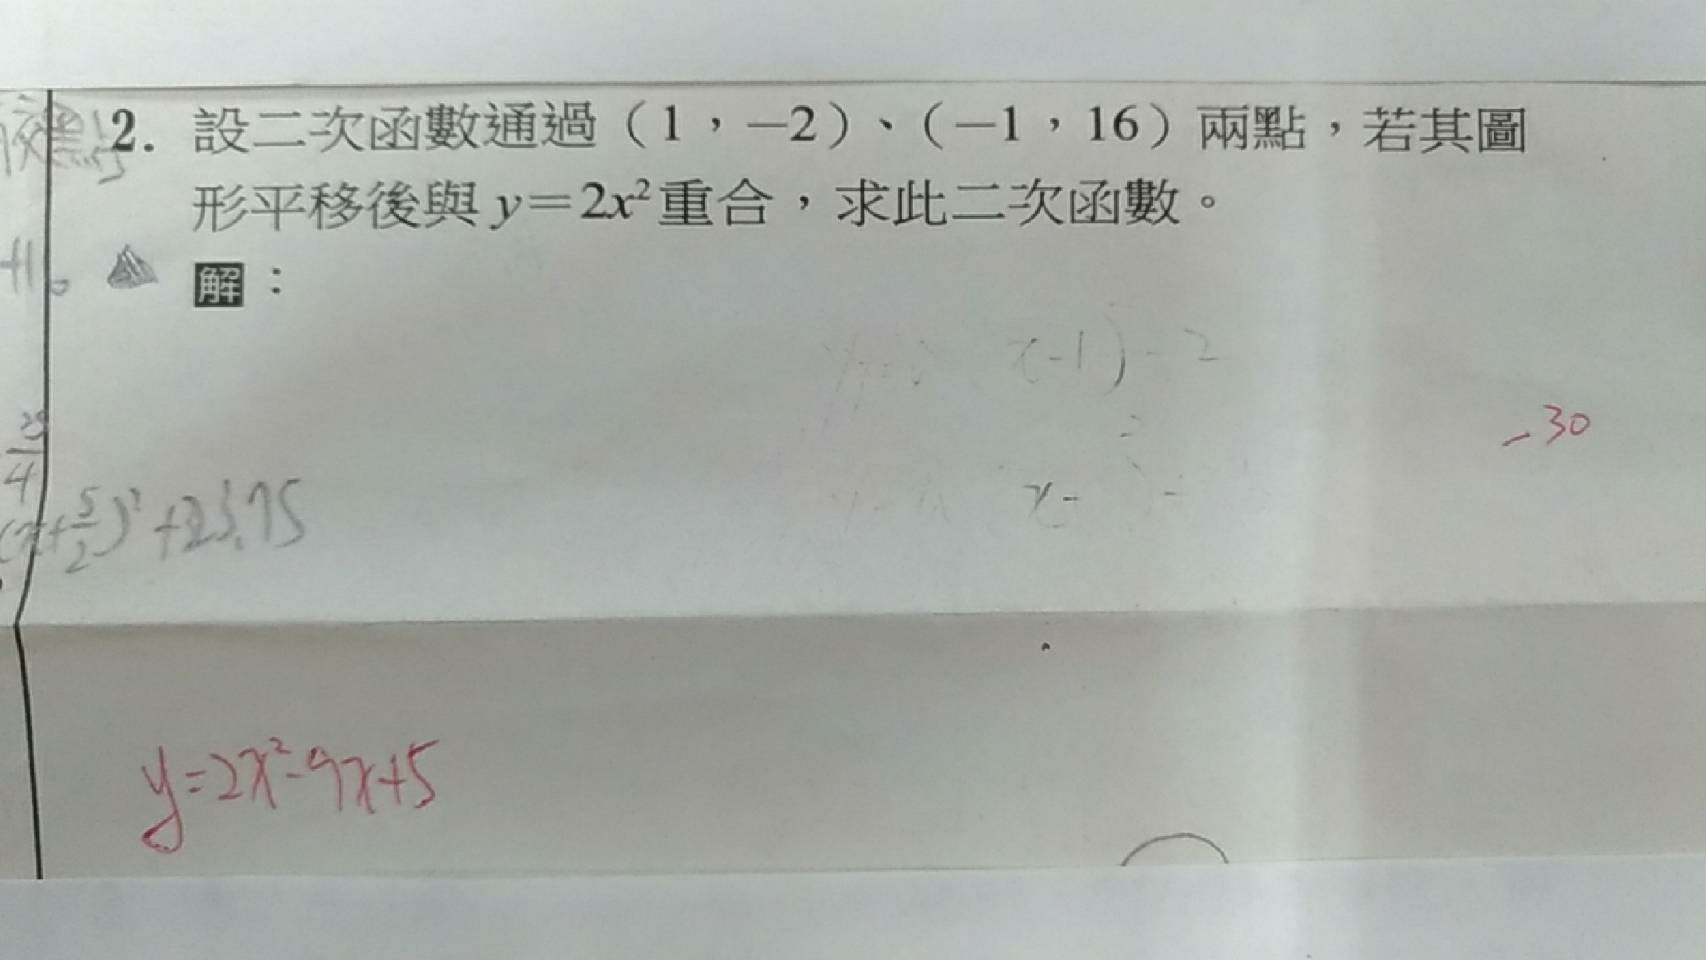 2. 設二次函數通過（1，－2）、（－1，16）兩點，若其圖
形平移後與 y＝2x²重合，求此二次函數。
解：
x-1) - 2
-30
x-
25/4
(x+5/2)²+23.75
y=2x²-9x+5